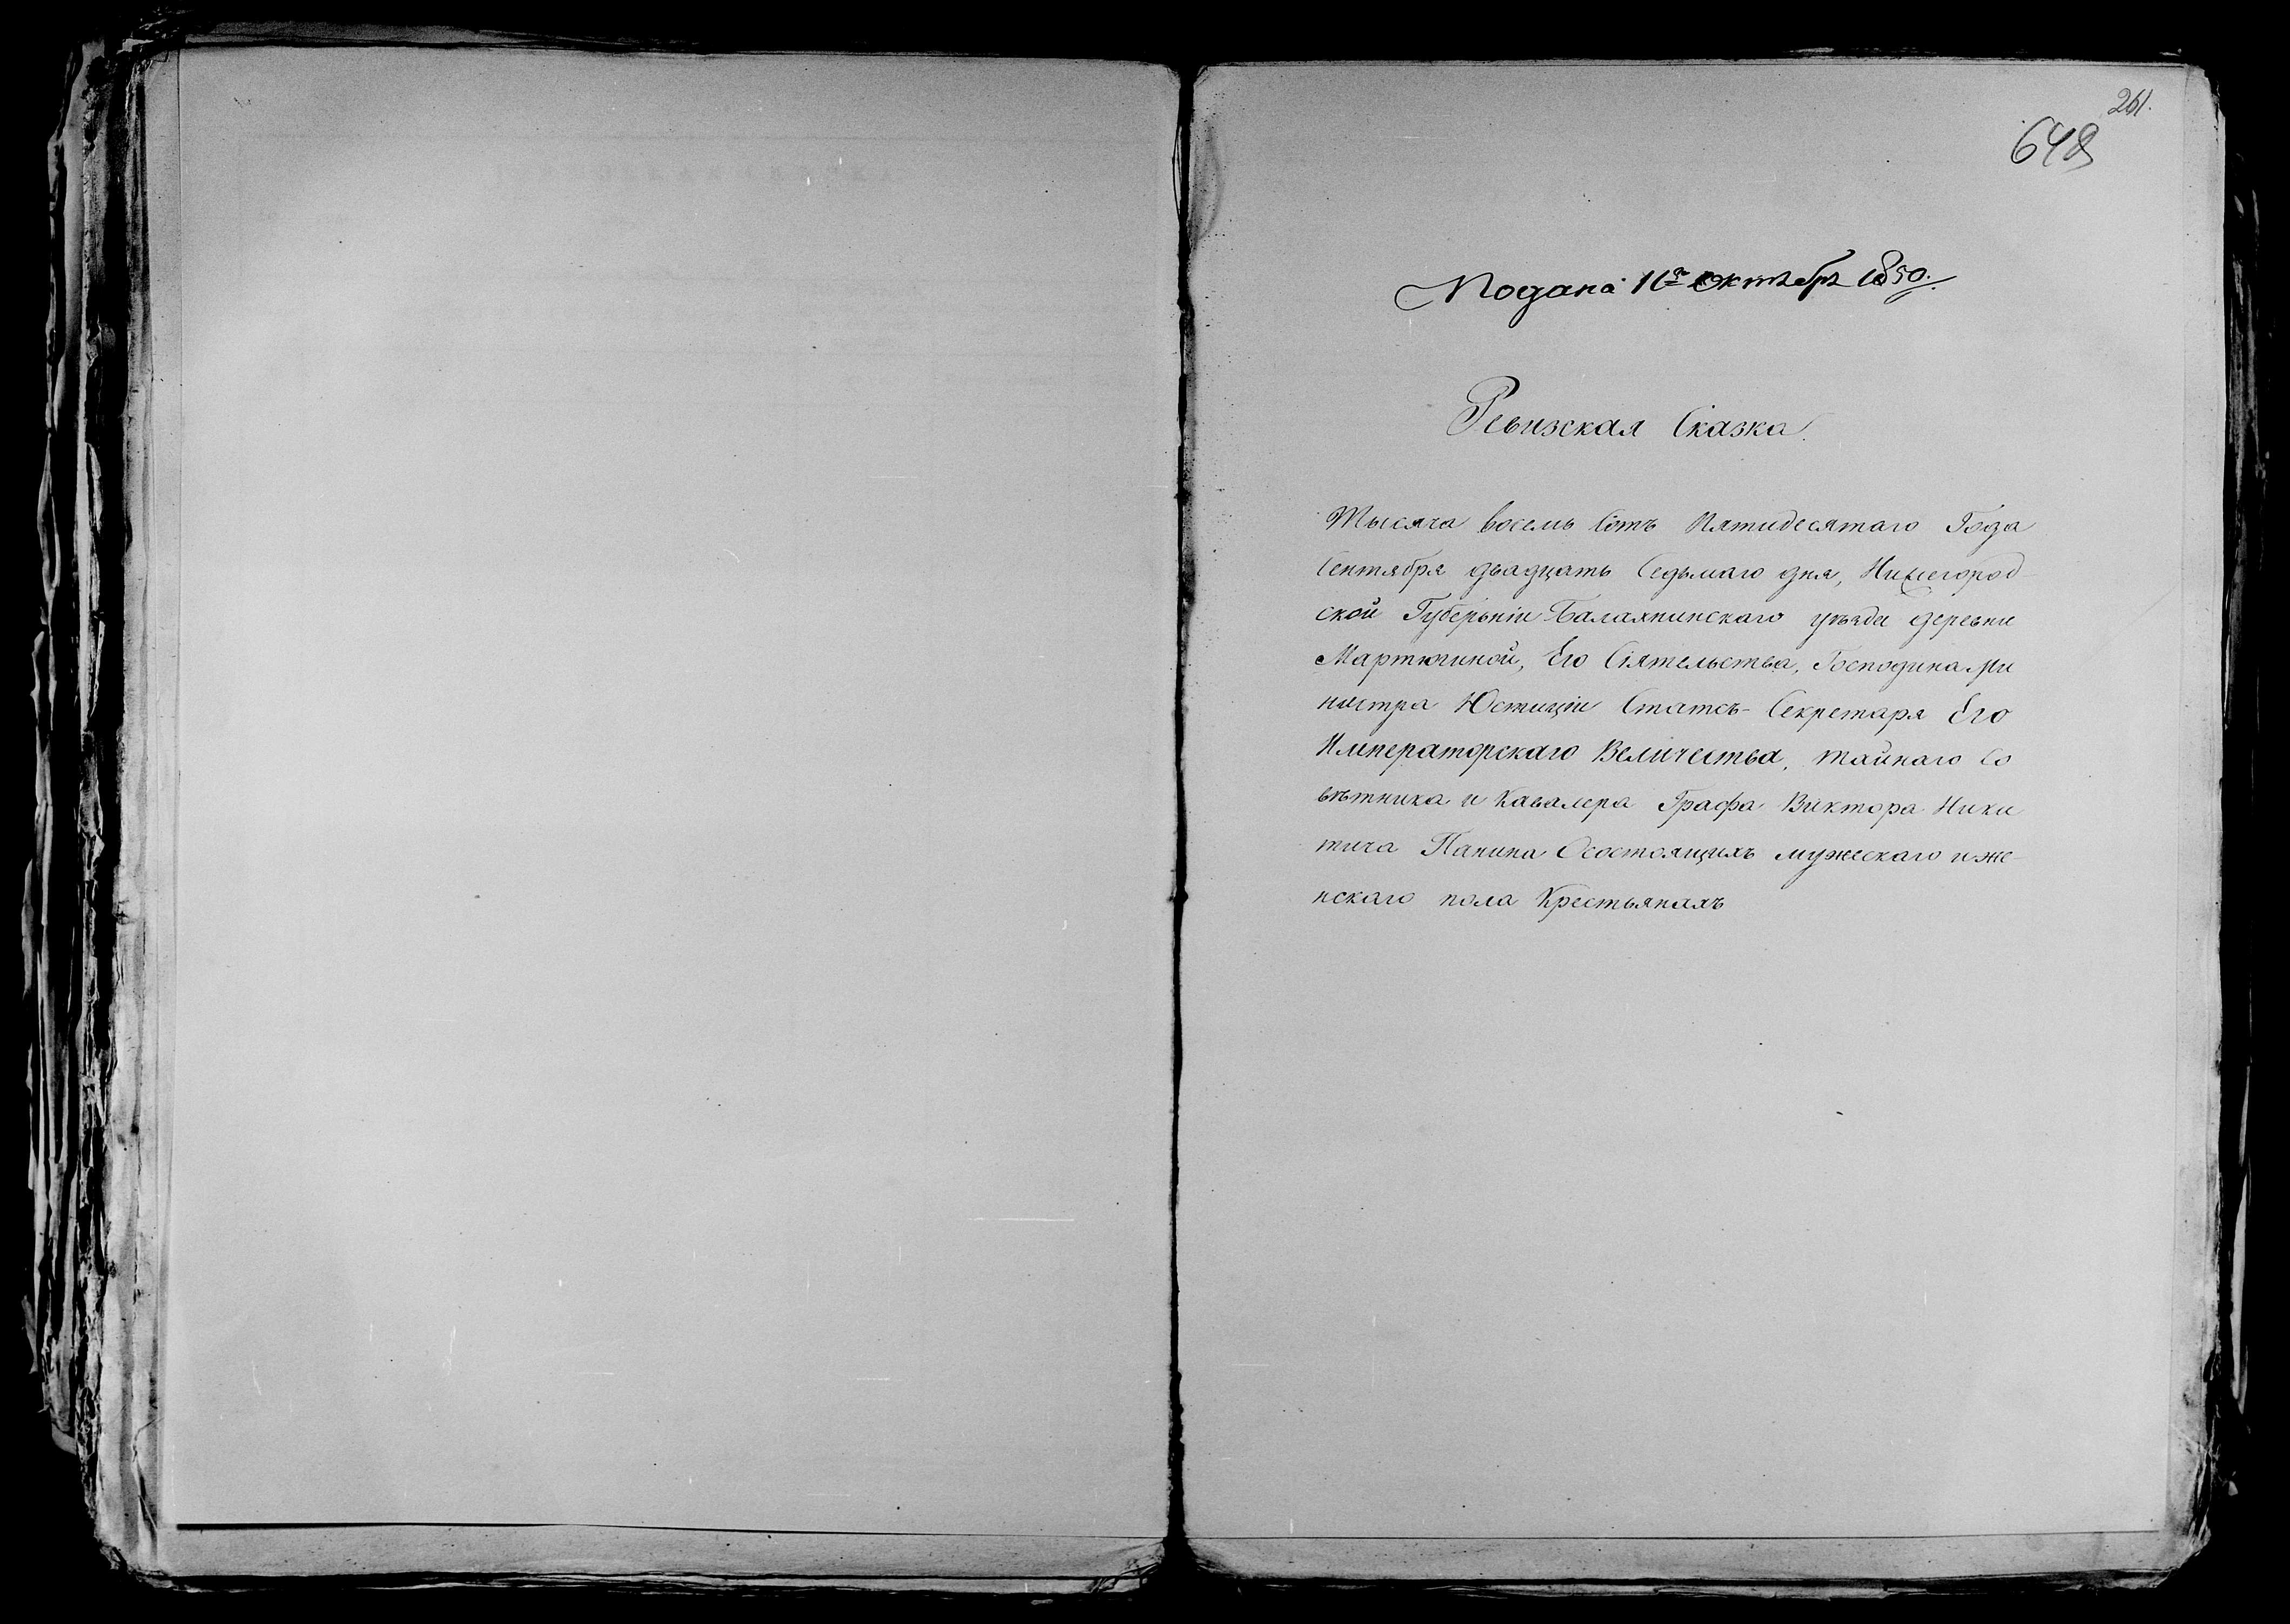 261.
648
Подана 16го октября 1850.
Ревизская Сказка.
Тысяча восемь Сотъ Пятидесятаго Года
Сентября двадцать Седьмаго дня, Нижегород
ской Губерьніи Балахнинскаго уѣзда деревни
Мартюгиной, Его Сіятельства, Господина Ми
нистра Юстиціи Статсъ-Секретаря Его
Императорскаго Величества, тайнаго Со
вѣтника и Кавалера Графа Виктора Ники
тича Панина Осостоящихъ мужескаго и же-
нскаго пола Крестьянахъ